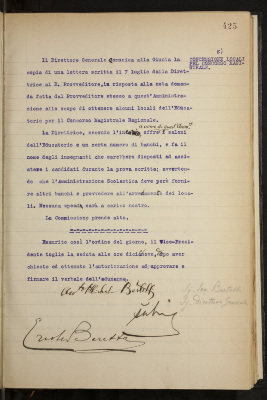 425
8)
CONCESSIONE LOCALI
PEL CONCORSO MAGI-
STRALE.
Il Direttore Generale comunica alla Giunta la
copia di una lettera scritta il 7 luglio dalla Diret-
trice al R. Provveditore, in risposta alla nota doman-
da fatta dal Provveditore stesso a quest'Amministra-
zione allo scopo di ottenere alcuni locali dell'Educa-
torio per il Concorso Magistrale Regionale.
La Direttrice, secondo l'intesa, offre i saloni
dell'Educatorio e un certo numero di banchi, e fa il
nome degli insegnanti che sarebbero disposti ad assi-
stere i candidati durante la prova scritta; avverten-
do che l'Amministrazione Scolastica deve però forni-
re altri banchi e provvedere all'arredamento dei loca-
li. Nessuna spesa sarà a nostro carico.
La Commissione prende atto.
Esaurito così l'ordine del giorno, il Vice-Presi-
dente toglie la seduta alle ore diciannove, dopo aver
chiesto ed ottenuto l'autorizzazione ad approvare e
firmare il verbale dell'adunanza.